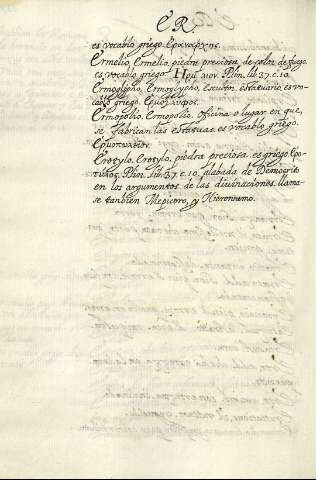 ER.
es vocablo griego. Ερανάρχος.
Ermelio, Ermelio, piedra preciosa de color de fuego
es vocablo griego Plin. lib. 37. c. 10.
Ermoglipho, Ermoglypho, Escultor, estatuario, es vo-
cablo griego. Ερμογλυφος.
Ermopolio, Ermopolio, oficina o lugar en que
se fabrican las estatuas es vocablo griego.
Erotylo, Erotylo, piedra preciosa. es griego Ερο-
τυλος. Plin. lib. 37. c. 10. alabada de Democrito
en los argumentos de las divinaciones. llama-
se tanbien y